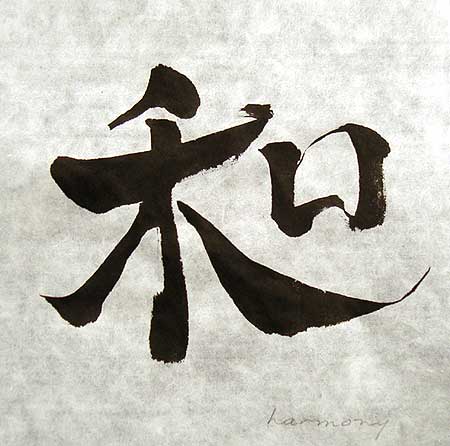 和
harmony